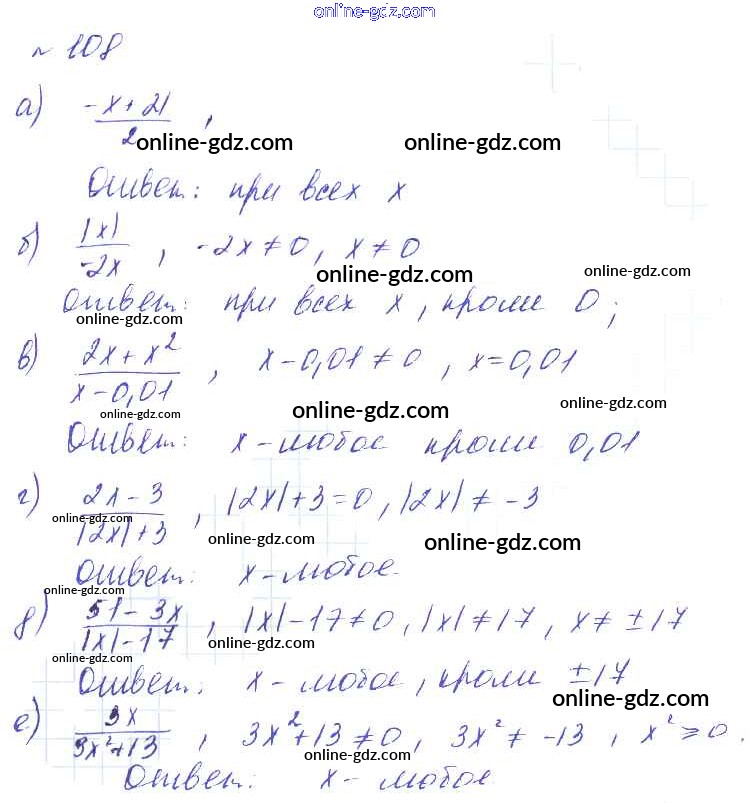 online-gdz.com
№ 108
а) (-x+21)/2 ,
online-gdz.com online-gdz.com
Ответ: при всех x
б) |x|/(-2x) , -2x≠0, x≠0
online-gdz.com online-gdz.com
Ответ: при всех x, кроме 0;
online-gdz.com
в) (2x+x²)/(x-0,01) , x-0,01≠0 , x=0,01
online-gdz.com online-gdz.com online-gdz.com
Ответ: x-любое кроме 0,01
г) (2x-3)/(|2x|+3) , |2x|+3=0, |2x|≠-3
online-gdz.com online-gdz.com online-gdz.com
Ответ: x-любое.
online-gdz.com
д) (51-3x)/(|x|-17) , |x|-17≠0, |x|≠17, x≠±17
online-gdz.com online-gdz.com
Ответ: x-любое, кроме ±17
online-gdz.com
е) 3x/(3x²+13) , 3x²+13≠0, 3x²≠-13 , x²≥0.
online-gdz.com
Ответ: x-любое